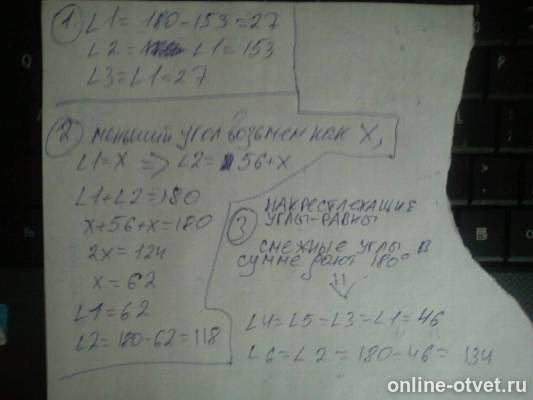 1 ∠1 = 180 - 153 = 27
∠2 = ∠1 = 153
∠3 = ∠1 = 27
2 меньший угол возьмем как x,
∠1 = x => ∠2 = 56 + x
∠1 + ∠2 = 180
x + 56 + x = 180
2x = 124
x = 62
∠1 = 62
∠2 = 180 - 62 = 118
3 НАКРЕСТЛЕЖАЩИЕ
УГЛЫ-РАВНЫ
СМЕЖНЫЕ УГЛЫ В
СУММЕ ДАЮТ 180°
∠4 = ∠5 = ∠3 = ∠1 = 46
∠6 = ∠2 = 180 - 46 = 134
online-otvet.ru